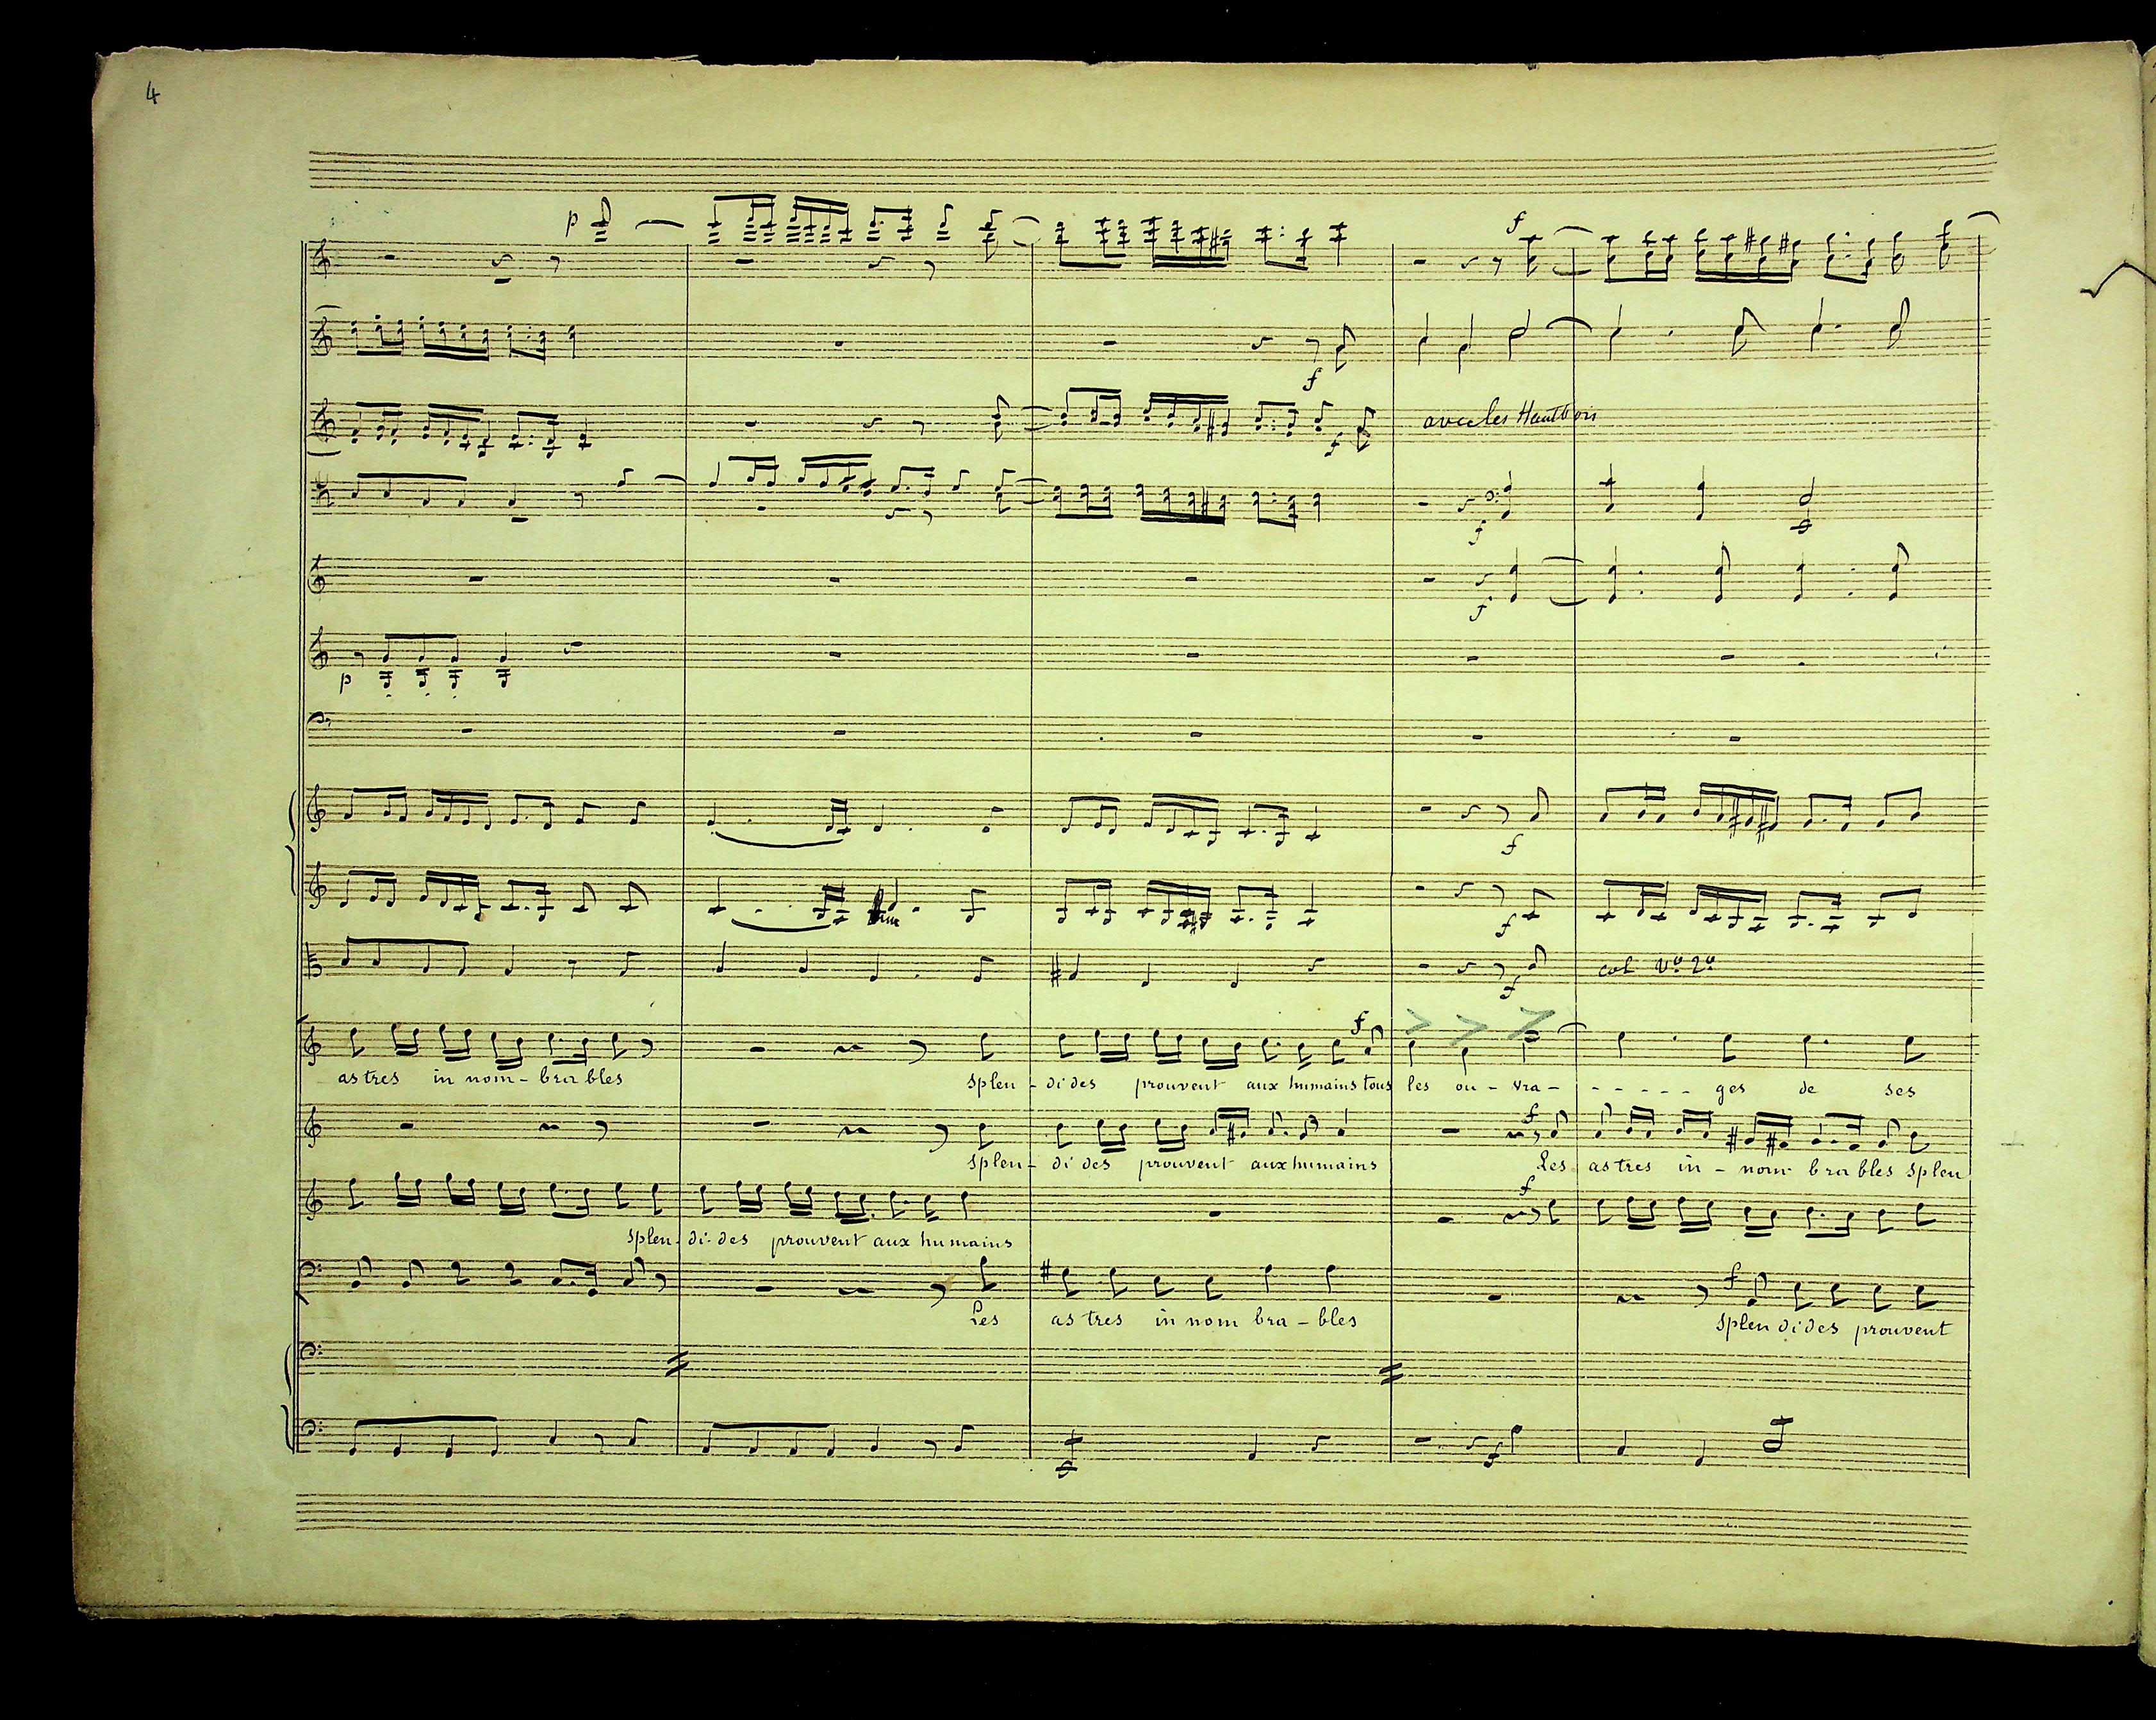 4
p
f
f
avec les Hautbois
f
f
f
p
f
f
f
col Vo 2o
f
astres in nom - bra bles splen - di des prouvent aux humains tous les ou - vra - - - - - - ges de ses
f
splen - di des prouvent aux humains Les astres in - nom bra bles splen
f
splen - di - des prouvent aux humains
f
Les as tres in nom bra - bles splen di des prouvent
f